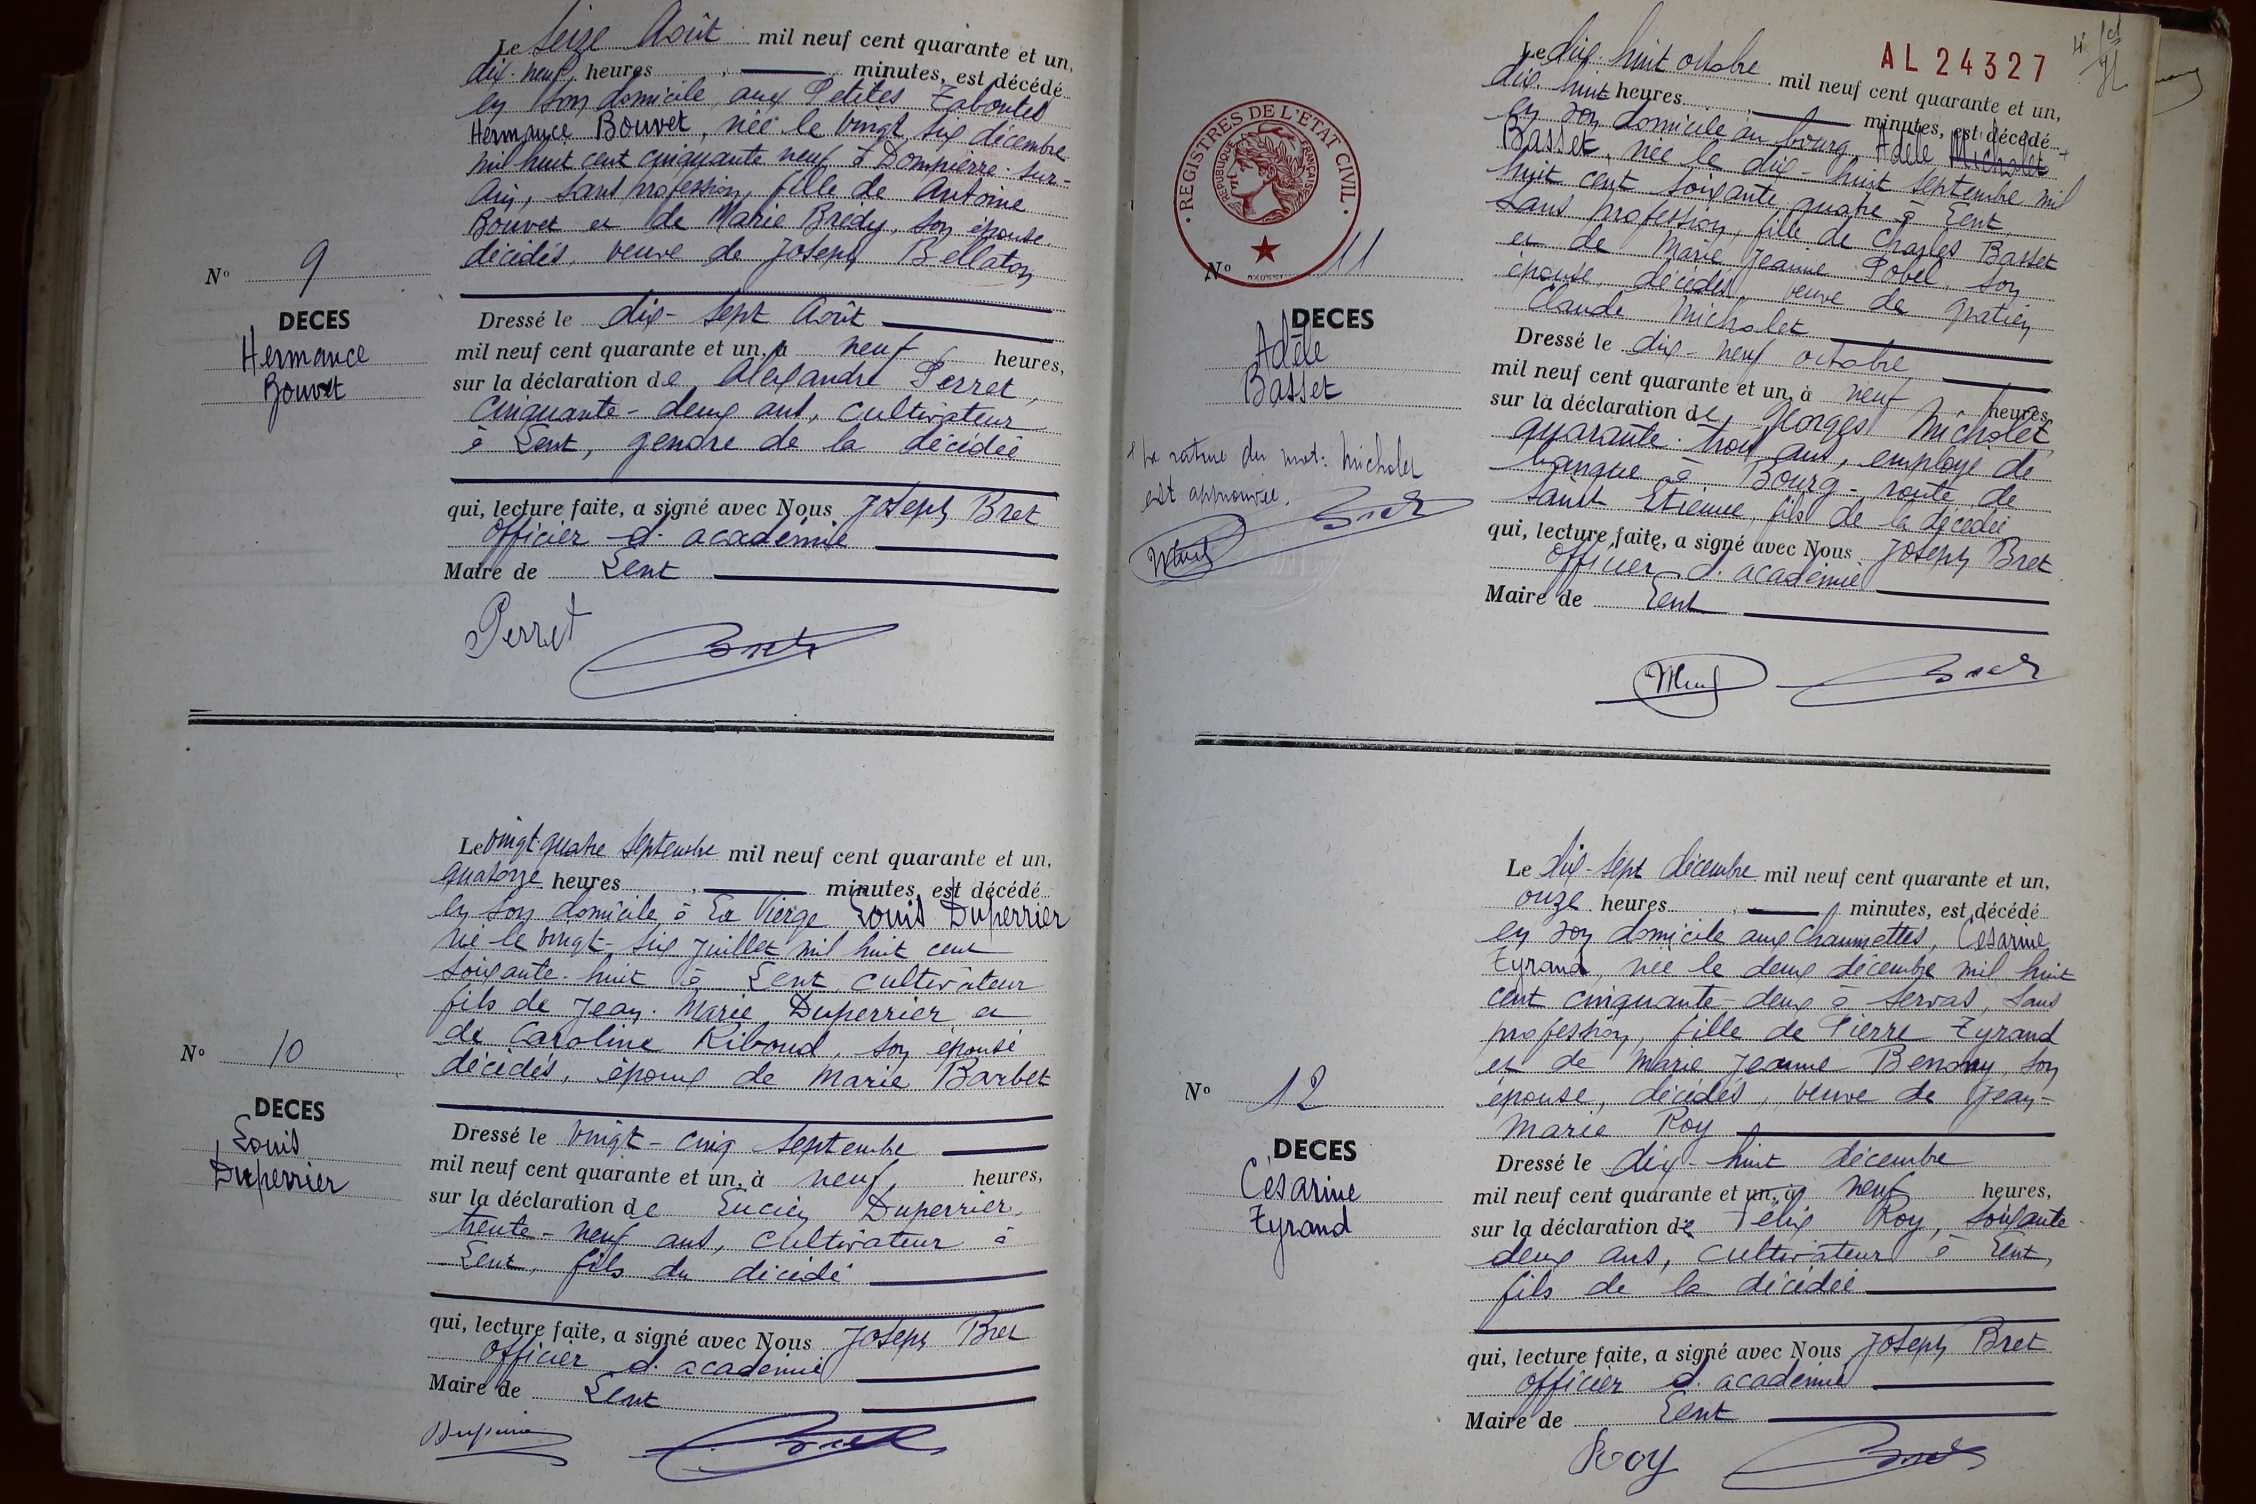 Le Seize Août mil neuf cent quarante et un,
dix-neuf heures , minutes, est décédé
en son domicile, aux Petites
Hermance Bouvet, née le vingt six décembre
mil huit cent cinquante neuf à Dompierre-sur-
Ain, sans profession, fille de Antoine
Bouvet et de Marie Brédy, son épouse
décédés, veuve de Joseph Bellaton
N° 9
DECES
Hermance
Bouvet
Dressé le dix-sept Août
mil neuf cent quarante et un, à neuf heures,
sur la déclaration de Alexandre Perret,
cinquante-deux ans, cultivateur
à Lent, gendre de la décédée
qui, lecture faite, a signé avec Nous Joseph Bret
Officier d'académie
Maire de Lent
Perret
Bret
Le vingt quatre Septembre mil neuf cent quarante et un,
quatorze heures , minutes, est décédé
en son domicile, à La Vierge Louis Duperrier
né le vingt-six juillet mil huit cent
soixante-huit à Lent, cultivateur
fils de Jean-Marie Duperrier et
de Caroline Riboud, son épouse
décédés, époux de Marie Barbet
N° 10
DECES
Louis
Duperrier
Dressé le vingt-cinq septembre
mil neuf cent quarante et un, à neuf heures,
sur la déclaration de Lucien Duperrier,
trente-neuf ans, cultivateur à
Lent, fils du décédé
qui, lecture faite, a signé avec Nous Joseph Bret
Officier d'académie
Maire de Lent
Duperrier
Bret
AL 24327
Le dix-huit octobre mil neuf cent quarante et un,
dix-huit heures , minutes, est décédé
en son domicile au bourg, Adèle Micholet
Basset, née le dix-huit septembre mil
huit cent soixante quatre à Lent,
sans profession, fille de Charles Basset
et de Marie Jeanne Pobel, son
épouse, décédés, veuve de Gratien
Claude Micholet
REGISTRES DE L'ETAT CIVIL
REPUBLIQUE FRANÇAISE
N° 11
DECES
Adèle
Basset
La rature du mot: Micholet
est approuvée.
Bret
Dressé le dix-neuf octobre,
mil neuf cent quarante et un, à neuf heures,
sur la déclaration de Georges Micholet,
quarante-trois ans, employé de
banque à Bourg, route de
Saint Etienne, fils de la décédée
qui, lecture faite, a signé avec Nous Joseph Bret
Officier d'académie
Maire de Lent
Bret
Le dix-sept décembre mil neuf cent quarante et un,
onze heures , minutes, est décédé
en son domicile aux Chaumettes, Césarine
Tyrand, née le deux décembre mil huit
cent cinquante-deux à Servas, sans
profession, fille de Pierre Tyrand
et de Marie Jeanne Benony, son
épouse, décédés, veuve de Jean-
Marie Roy
N° 12
DECES
Césarine
Tyrand
Dressé le dix-huit décembre
mil neuf cent quarante et un, à neuf heures,
sur la déclaration de Félix Roy, soixante-
deux ans, cultivateur à Lent,
fils de la décédée
qui, lecture faite, a signé avec Nous Joseph Bret
Officier d'académie
Maire de Lent
Roy
Bret